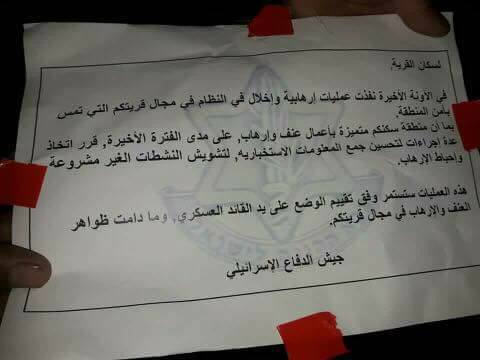 لسكان القرية,
في الآونة الأخيرة نفذت عمليات إرهابية وإخلال في النظام في مجال قريتكم التي تمس
بأمن المنطقة.
بما أن منطقة سكنكم متميزة بأعمال عنف وإرهاب, على مدى الفترة الأخيرة, قرر اتخاذ
عدة إجراءات لتحسين جمع المعلومات الاستخبارية, لتشويش النشطات الغير مشروعة
وإحباط الارهاب.
هذه العمليات ستستمر وفق تقييم الوضع على يد القائد العسكري, وما دامت ظواهر
العنف والارهاب في مجال قريتكم.
جيش الدفاع الإسرائيلي